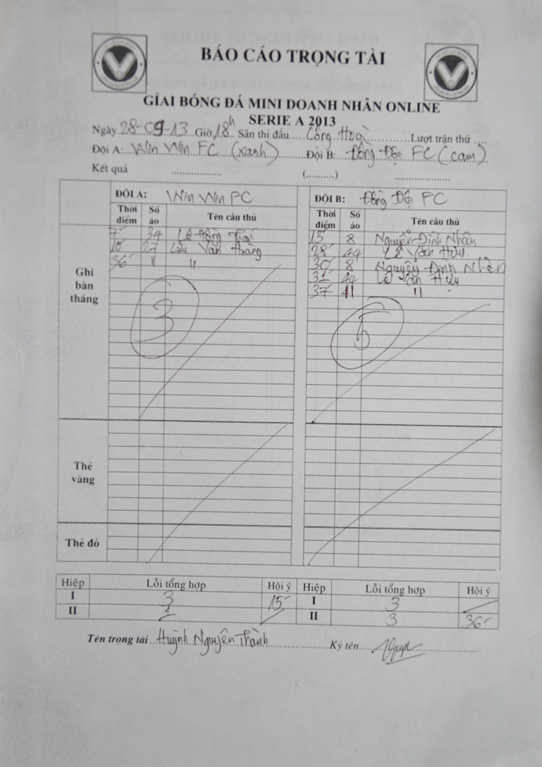 BÁO CÁO TRỌNG TÀI
GIẢI BÓNG ĐÁ MINI DOANH NHÂN ONLINE
SERIE A 2013
Ngày 28-09-13 Giờ 18h Sân thi đấu Cộng Hoà Lượt trận thứ
Đội A: Win Win FC (xanh) Đội B: Đồng Đội FC (cam)
Kết quả (..........)
ĐỘI A: Win Win FC ĐỘI B: Đồng Đội FC
Thời điểm Số áo Tên cầu thủ Thời điểm Số áo Tên cầu thủ
Ghi bàn thắng
7' 34 Lê Hồng 15' 8 Nguyễn Đình Nhân
27 Văn Thắng 28' 44 Lê Văn Hữu
36' " " 30' 8 Nguyễn Đình Nhân
44 Lê Văn Hữu
37' 11 "
3 5
Thẻ vàng
Thẻ đỏ
Hiệp Lỗi tổng hợp Hội ý Hiệp Lỗi tổng hợp Hội ý
I 3 15' I 3
II II 3 36'
Tên trọng tài Huỳnh Nguyên Thành Ký tên